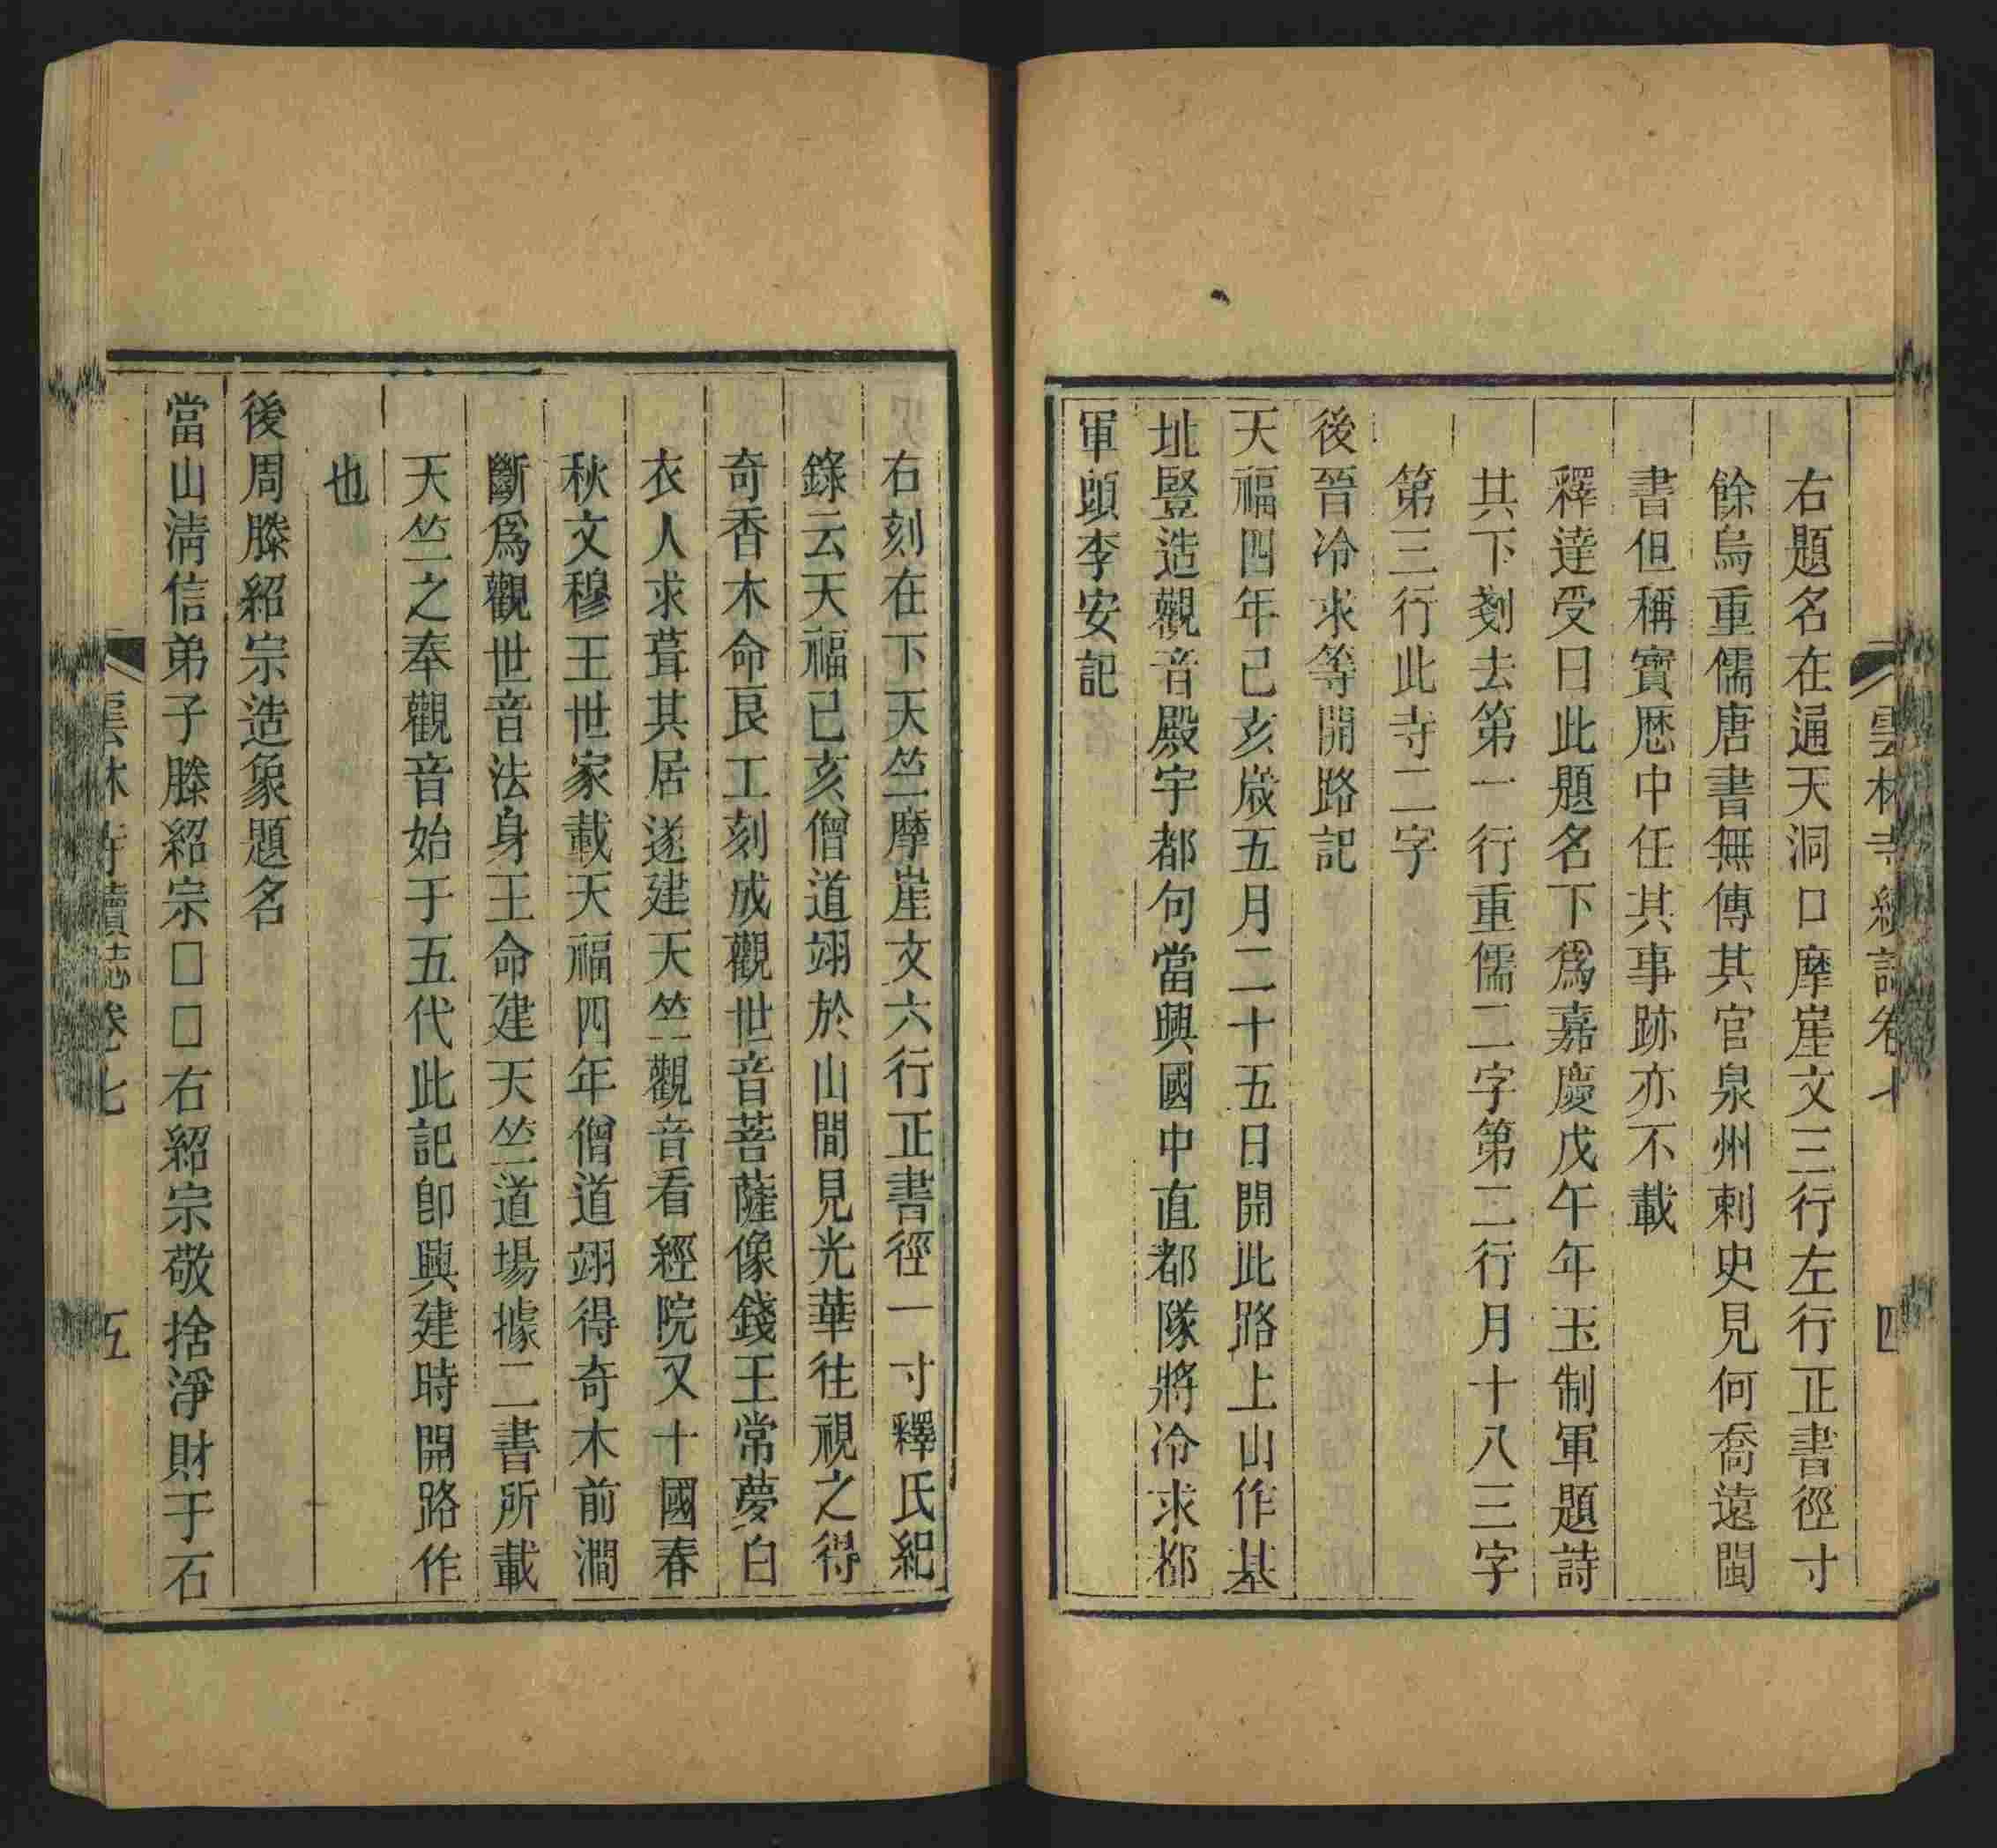 雲林寺續誌卷七
四
右題名在通天洞口摩崖文三行左行正書徑寸
餘烏重儒唐書無傳其官泉州刺史見何喬遠閩
書但稱寳厯中任其事跡亦不載
釋達受曰此題名下爲嘉慶戊午年玉制軍題詩
共下剗去第一行重儒二字第二行月十八三字
第三行此寺二字
後晉冷求等開路記
天福四年己亥嵗五月二十五日開此路上山作基
址豎造觀音殿宇都句當興國中直都隊將冷求都
軍頭李安記
右刻在下天竺摩崖文六行正書徑一寸釋氏紀
錄云天福己亥僧道翊於山間見光華往視之得
奇香木命良工刻成觀世音菩薩像錢王常夢白
衣人求葺其居遂建天竺觀音看經院又十國春
秋文穆王世家載天福四年僧道翊得奇木前澗
斷爲觀世音法身王命建天竺道場據二書所載
天竺之奉觀音始于五代此記卽興建時開路作
也
後周滕紹宗造象題名
當山淸信弟子滕紹宗□□右紹宗敬捨淨財于石
雲林寺續誌卷七
五